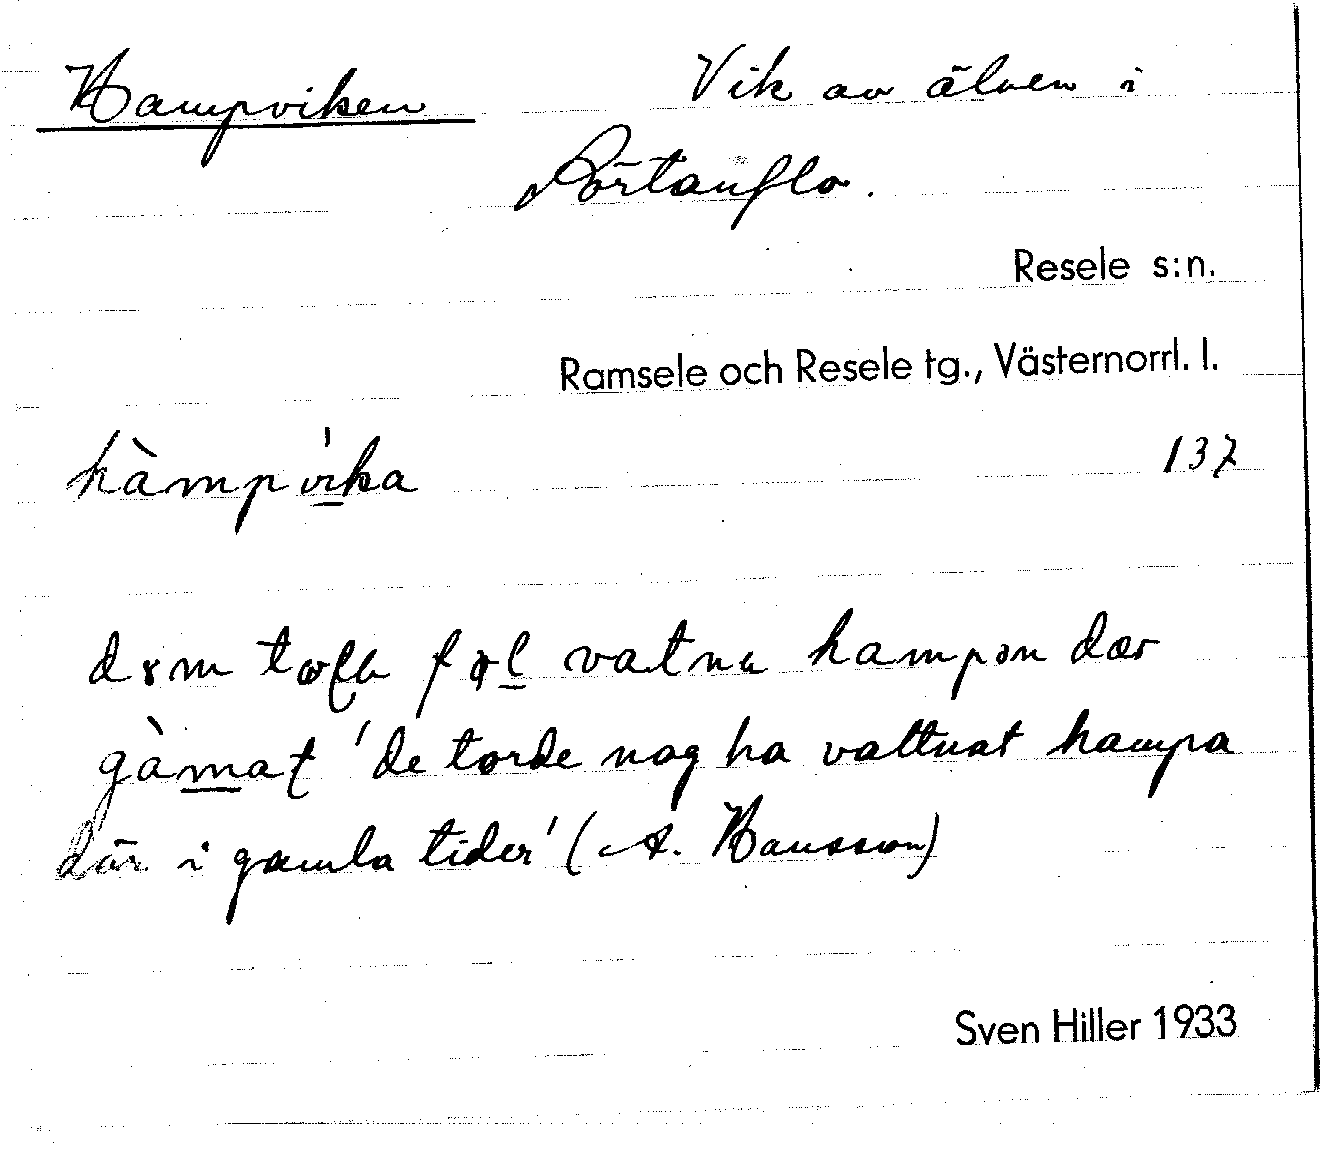 Hampviken Vik av älven i
Sörtanflo.
Resele s:n.
Ramsele och Resele tg., Västernorrl. l.
hàmpvi̱ka 137
vatna hampən dær
gàmat 'de torde nog ha vattnat hampa
där i gamla tider' (A. Hansson)
Sven Hiller 1933